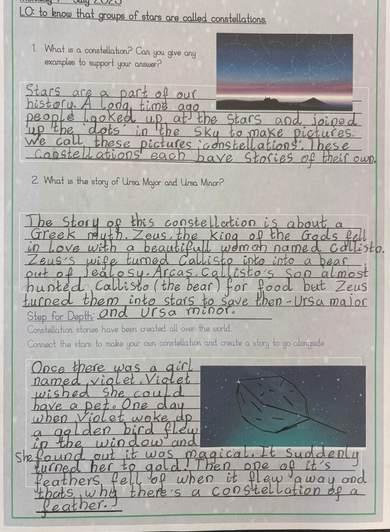 July 2023
LO: to know that groups of stars are called constellations.
1. What is a constellation? Can you give any
examples to support your answer?
Stars are a part of our
history. A long time ago
people looked up at the stars and joined
up the 'dots' in the sky to make pictures.
We call these pictures 'constellations'. These
constellations each have stories of their own.
2. What is the story of Ursa Major and Ursa Minor?
The story of this constellation is about a
Greek myth. Zeus, the king of the Gods fell
in love with a beautifull woman named Callisto.
Zeus's wife turned Callisto into into a bear
out of jealosy. Arcas, Callisto's son almost
hunted Callisto (the bear) for food but Zeus
turned them into stars to save then - Ursa major
and Ursa minor.
Step for Depth:
Constellation stories have been created all over the world.
Connect the stars to make your own constellation and create a story to go alongside
Once there was a girl
named violet. Violet
wished she could
have a pet. One day
when Violet woke up
a golden bird flew
in the window and
She found out it was magical. It Suddenly
turned her to gold! Then one of it's
feathers, fell of when it flew away and
thats why there's a constellation of a
feather.